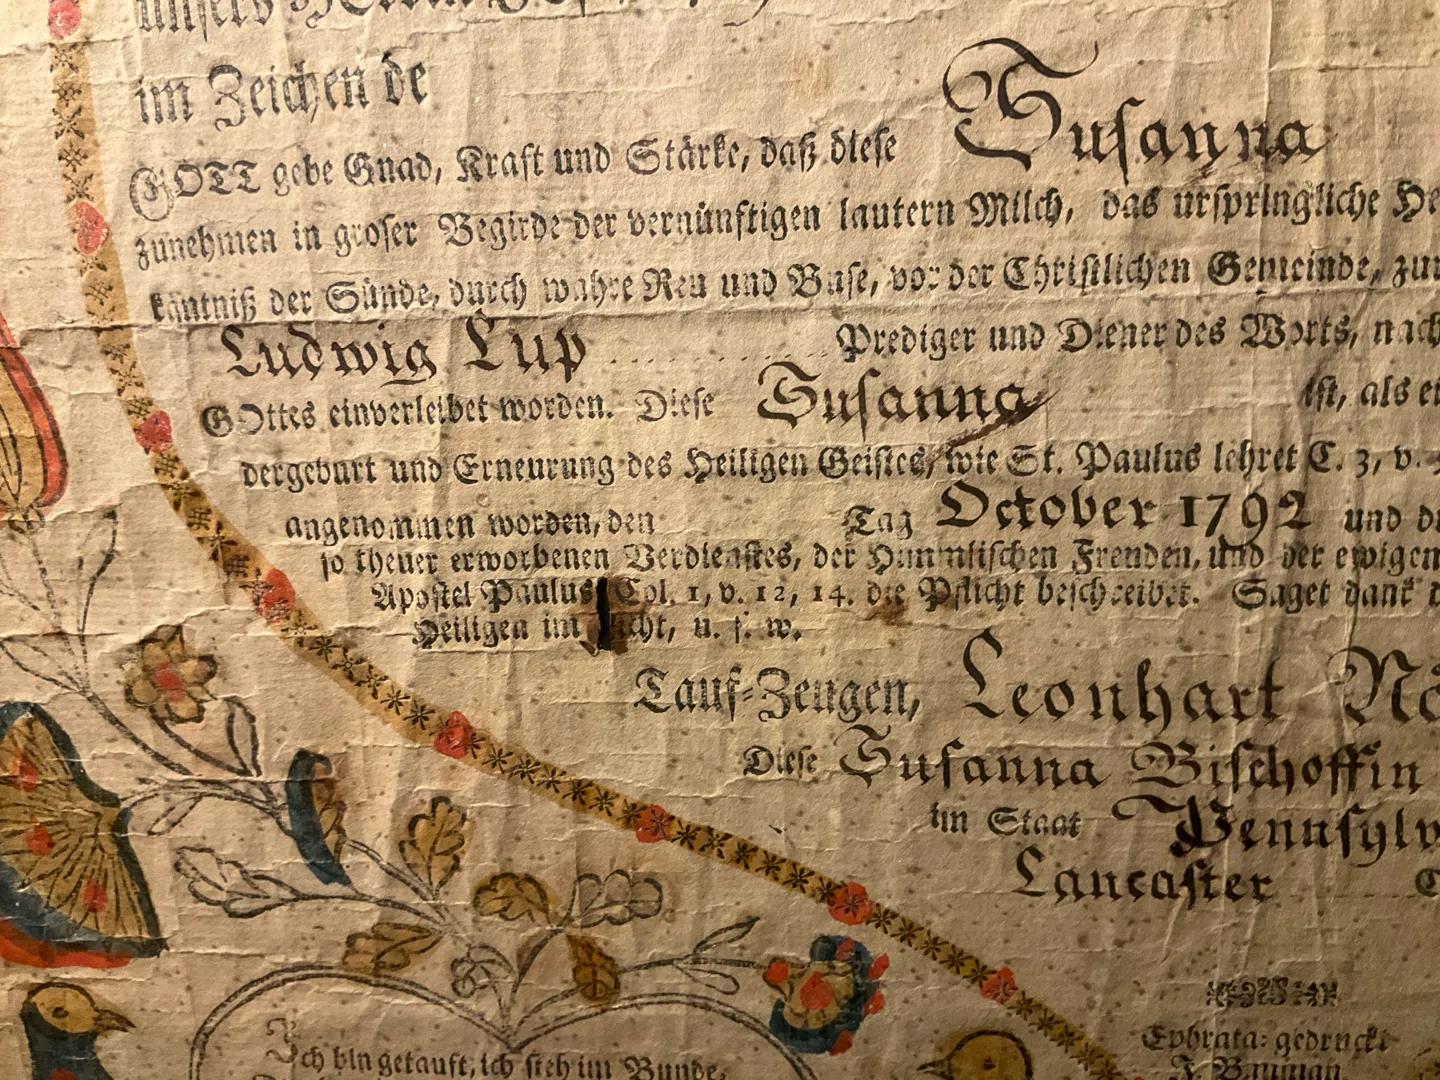 unsers
im Zeichen de
GOTT gebe Gnad, Kraft und Stärke, daß diese Susanna
zunehmen in groser Begirde der vernünftigen lautern Milch, das urspringliche He
käntniß der Sünde, durch wahre Reu und Buse, vor der Christlichen Gemeinde, zur
Ludwig Lup Prediger und Diener des Worts, nach
GOttes einverleibet worden. Diese Susanna ist, als ei
dergeburt und Erneurung des Heiligen Geistes, wie St. Paulus lehret C. 3, v.
angenommen worden, den Tag October 1792 und di
so theuer erworbenen Verdienstes, der Himmlischen Freuden, und der ewigen
Apostel Paulus Col. 1, v. 12, 14. die Pflicht beschreibet. Saget dank d
Heiligen im icht, u. s. w.
Tauf-Zeugen, Leonhart Nö
Diese Susanna Bischoffin
im Staat Pennsylv
Lancaster C
Ephrata: gedruckt
J. Bauman
Ich bin getauft, ich steh im Bunde,